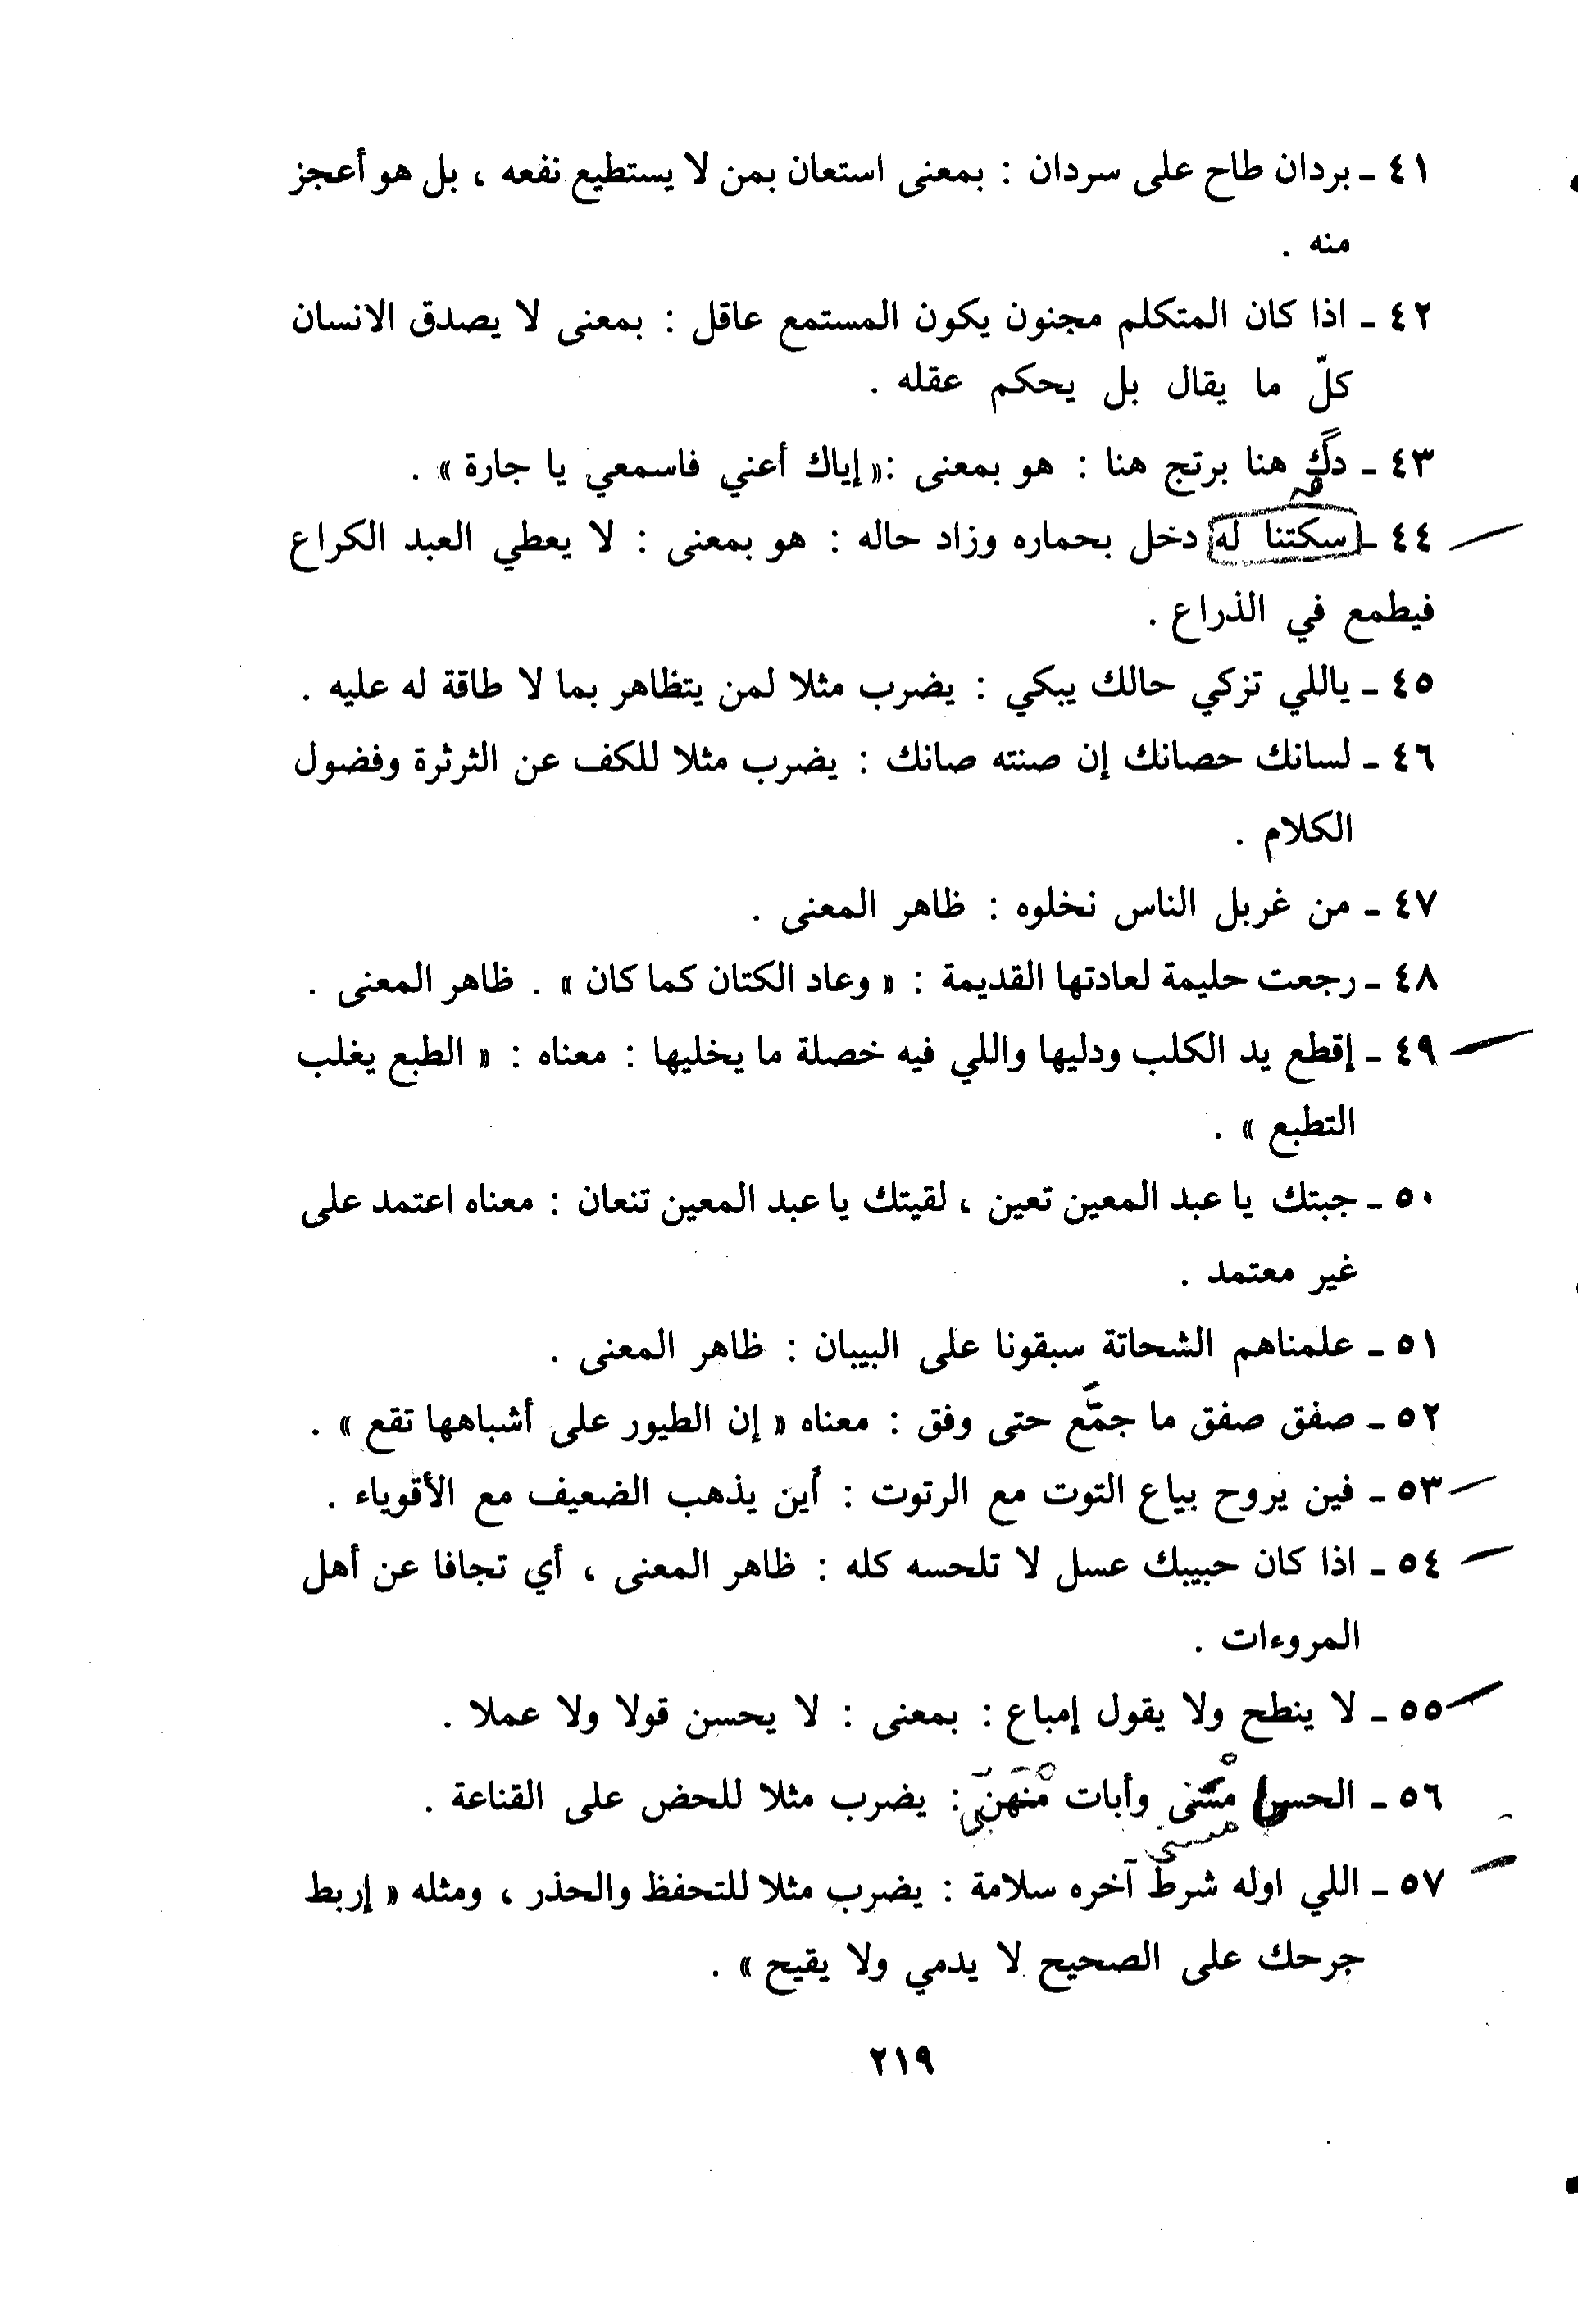 ٤١ ـ بردان طاح على سردان : بمعنى استعان بمن لا يستطيع نفعه ، بل هو أعجز
منه .
٤٢ ـ اذا كان المتكلم مجنون يكون المستمع عاقل : بمعنى لا يصدق الانسان
كلّ ما يقال بل يحكم عقله .
٤٣ ـ دگ هنا برتج هنا : هو بمعنى : « إياك أعني فاسمعي يا جارة » .
٤٤ ـ سكتنا له دخل بحماره وزاد حاله : هو بمعنى : لا يعطي العبد الكراع
فيطمع في الذراع .
٤٥ ـ ياللي تزكي حالك يبكي : يضرب مثلا لمن يتظاهر بما لا طاقة له عليه .
٤٦ ـ لسانك حصانك إن صنته صانك : يضرب مثلا للكف عن الثرثرة وفضول
الكلام .
٤٧ ـ من غربل الناس نخلوه : ظاهر المعنى .
٤٨ ـ رجعت حليمة لعادتها القديمة : « وعاد الكتان كما كان » . ظاهر المعنى .
٤٩ ـ إقطع يد الكلب ودليها واللي فيه خصلة ما يخليها : معناه : « الطبع يغلب
التطبع » .
٥٠ ـ جبتك يا عبد المعين تعين ، لقيتك يا عبد المعين تنعان : معناه اعتمد على
غير معتمد .
٥١ ـ علمناهم الشحاتة سبقونا على البيبان : ظاهر المعنى .
٥٢ ـ صفق صفق ما جمَّع حتى وفق : معناه « إن الطيور على أشباهها تقع » .
٥٣ ـ فين يروح بياع التوت مع الرتوت : أين يذهب الضعيف مع الأقوياء .
٥٤ ـ اذا كان حبيبك عسل لا تلحسه كله : ظاهر المعنى ، أي تجافا عن أهل
المروءات .
٥٥ ـ لا ينطح ولا يقول إمباع : بمعنى : لا يحسن قولا ولا عملا .
٥٦ ـ وأبات : يضرب مثلا للحض على القناعة .
٥٧ ـ اللي اوله شرط آخره سلامة : يضرب مثلا للتحفظ والحذر ، ومثله « إربط
جرحك على الصحيح لا يدمي ولا يقيح » .
٢١٩